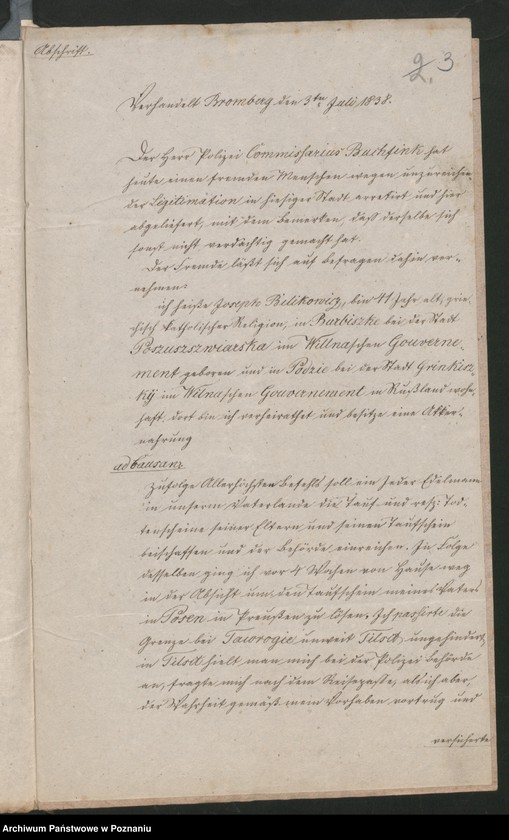 Abschrift.
2. 3
Verhandelt Bromberg den 3ten Juli 1838.
Der Herr Polizei Commissarius Buchfink hat
heute einen fremden Menschen wegen unzureichen-
der Legitimation in hiesiger Stadt arretirt und hier
abgeliefert, mit dem Bemerken, daß derselbe sich
sonst nicht verdächtig gemacht hat.
Der Fremde läßt sich auf Befragen dahin ver-
nehmen:
ich heiße Joseph Bilikowicz, bin 41 Jahr alt, grie-
chisch katholischer Religion, in Barbiszke bei der Stadt
Poszuszwiarska im Willnaschen Gouverne-
ment geboren und in Podzie bei der Stadt Grinkisz-
kij im Wilnaschen Gouvernement in Rußland wohn-
haft, dort bin ich verheirathet und besitze eine Acker-
nahrung
ad causam
Zufolge Allerhöchsten Befehls soll ein jeder Edelmann
in unserm Vaterlande die Tauf- und resp: Tod-
tenscheine seiner Eltern und seinen Taufschein
beischaffen und der Behörde einreichen. In Folge
desselben ging ich vor 4 Wochen von Hause weg
in der Absicht um den Taufschein meines Vaters
in Posen in Preußen zu lösen. Ich passirte die
Grenze bei Tauroggie unweit Tilsit, ungehindert,
in Tilsit hielt man mich bei der Polizei Behörde
an, fragte mich nach dem Reisepasse, als ich aber,
der Wahrheit gemäß mein Vorhaben vortrug und
versicherte
Archiwum Państwowe w Poznaniu